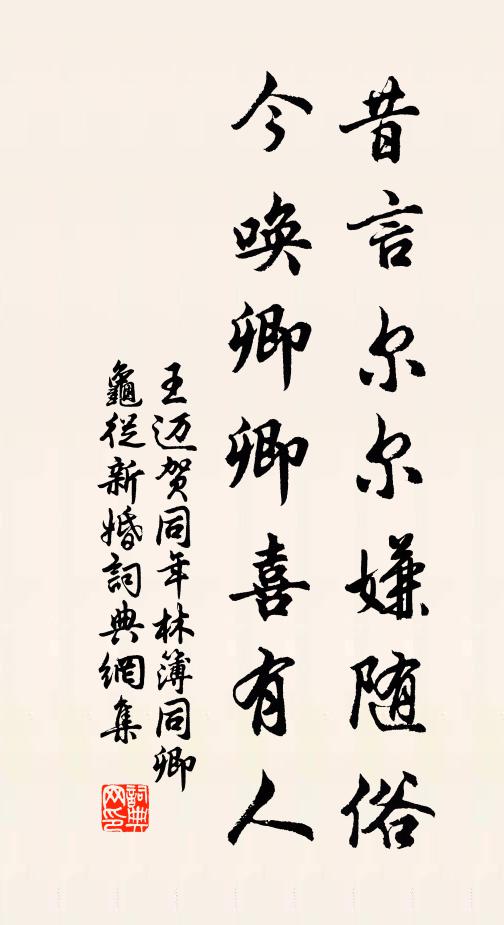 昔言尔尔嫌随俗
今唤卿卿喜有人
王迈贺同年林簿同卿
龜從新婚詞典網集
詞典
网印